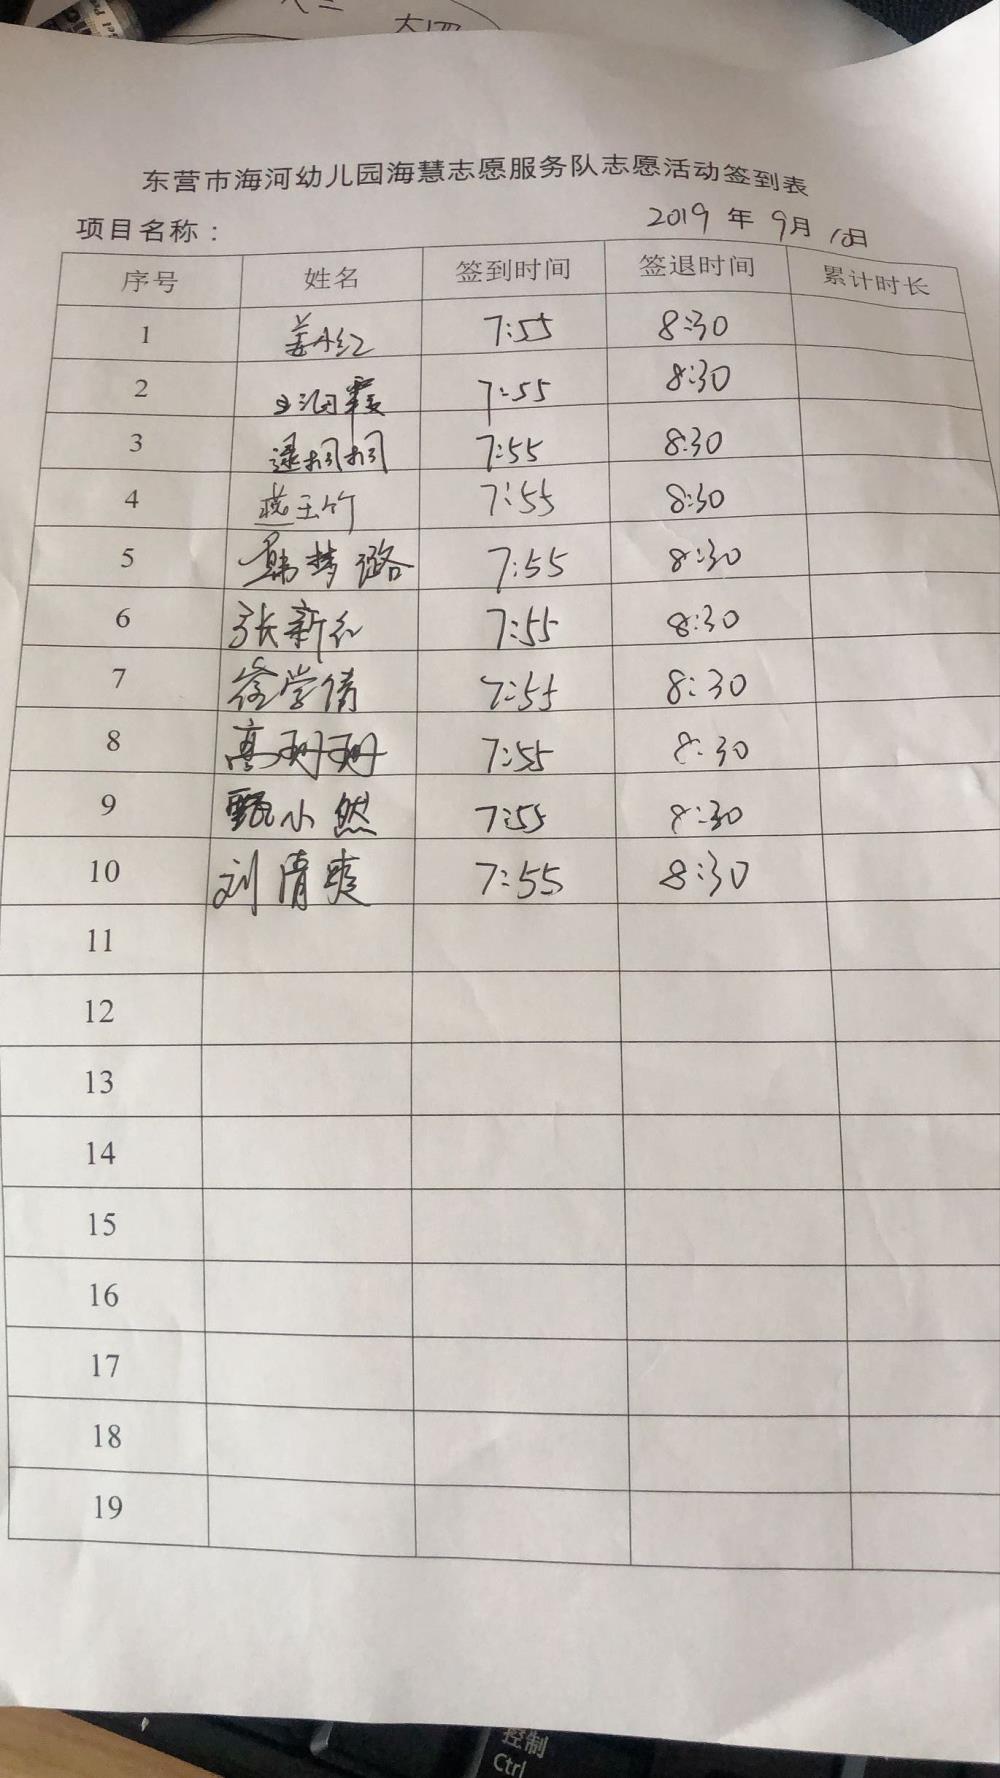 大四
东营市海河幼儿园海慧志愿服务队志愿活动签到表
项目名称： 2019 年 9月 10日
序号 姓名 签到时间 签退时间 累计时长
1 姜小红 7:55 8:30
2 王海霞 7:55 8:30
3 逯桐桐 7:55 8:30
4 燕玉竹 7:55 8:30
5 韩梦璐 7:55 8:30
6 张新红 7:55 8:30
7 徐学倩 7:55 8:30
8 高珊珊 7:55 8:30
9 甄小然 7:55 8:30
10 刘清爽 7:55 8:30
11
12
13
14
15
16
17
18
19
控制
Ctrl